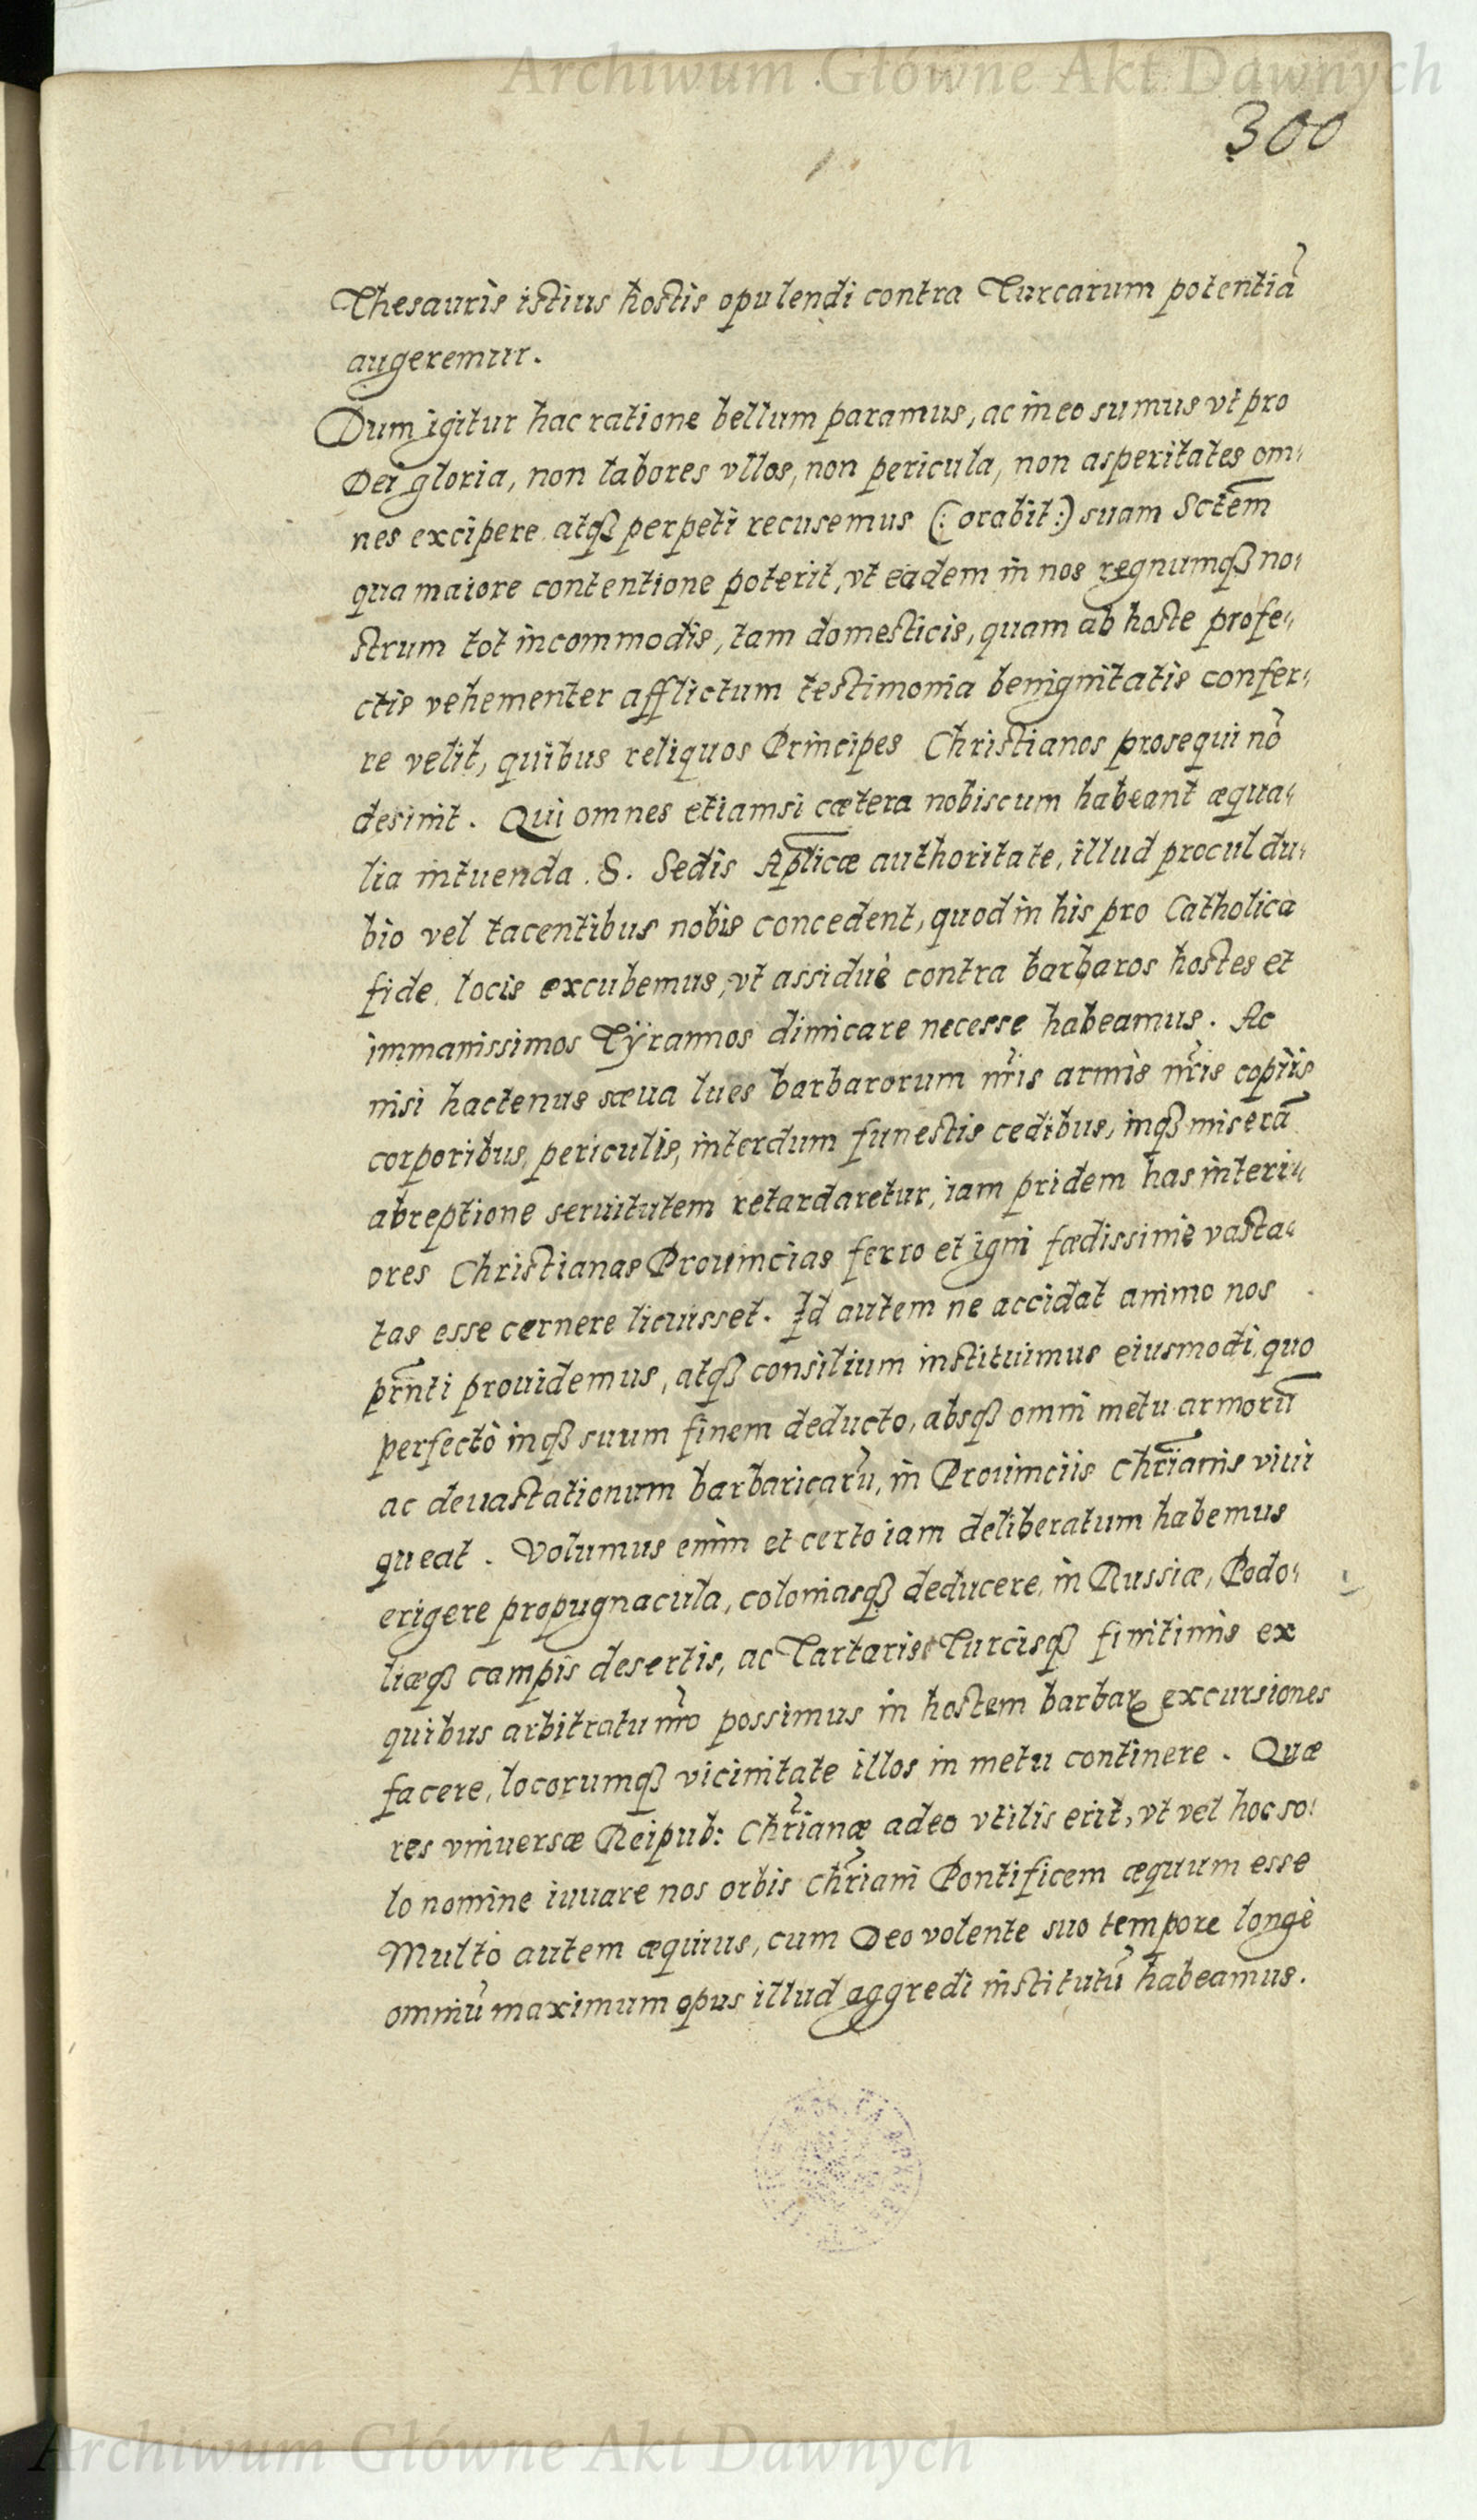 Archiwum Główne Akt Dawnych
300
Thesauris istius hostis opulendi contra Turcarum potentiã
augeremur.
Dum igitur hac ratione bellum paramus, ac in eo sumus vt pro
Dei gloria, non labores vllos, non pericula, non asperitates om¬
nes excipere atqꝫ perpeti recusemus (: orabit :) suam Sctẽm
qua maiore contentione poterit, vt eadem in nos regnumqꝫ no¬
strum tot incommodis, tam domesticis, quam ab hoste profe¬
ctis vehementer afflictum testimonia benignitatis confer¬
re velit, quibus reliquos Principes Christianos prosequi nõ
desinit. Qui omnes etiamsi cætera nobiscum habeant æqua¬
lia intuenda S. Sedis Aplicæ authoritate, illud procul du¬
bio vel tacentibus nobis concedent, quod in his pro Catholica
fide locis excubemus, vt assiduè contra barbaros hostes et
immanissimos Tÿrannos dimicare necesse habeamus. Ac
nisi hactenus sæua lues barbarorum nr̃is armis nr̃is copiis
corporibus, periculis, interdum funestis cedibus, inqꝫ miserã
abreptione seruitutem retardaretur, iam pridem has interi¬
ores Christianas Prouincias ferro et igni fœdissimè vasta¬
tas esse cernere licuisset. Id autem ne accidat animo nos
pr̃nti prouidemus, atqꝫ consilium instituimus eiusmodi, quo
perfectò inqꝫ suum finem deducto, absqꝫ omni metu armorũ
ac deuastationum barbaricarũ, in Prouinciis Chr̃ianis viui
queat. Volumus enim et certo iam deliberatum habemus
erigere propugnacula, coloniasqꝫ deducere, in Russiæ, Podo¬
liæqꝫ campis desertis, ac Tartaris Turcisqꝫ finitimis ex
quibus arbitratu nr̃o possimus in hostem barbaꝝ excursiones
facere, locorumqꝫ vicinitate illos in metu continere. Quæ
res vniuersæ Reipub: Chr̃ianæ adeo vtilis erit, vt vel hoc so¬
lo nomine iuuare nos orbis Chr̃iani Pontificem æquum esse
Multò autem æquius, cum Deo volente suo tempore longè
omniũ maximum opus illud aggredi institutũ habeamus.
Archiwum Główne Akt Dawnych